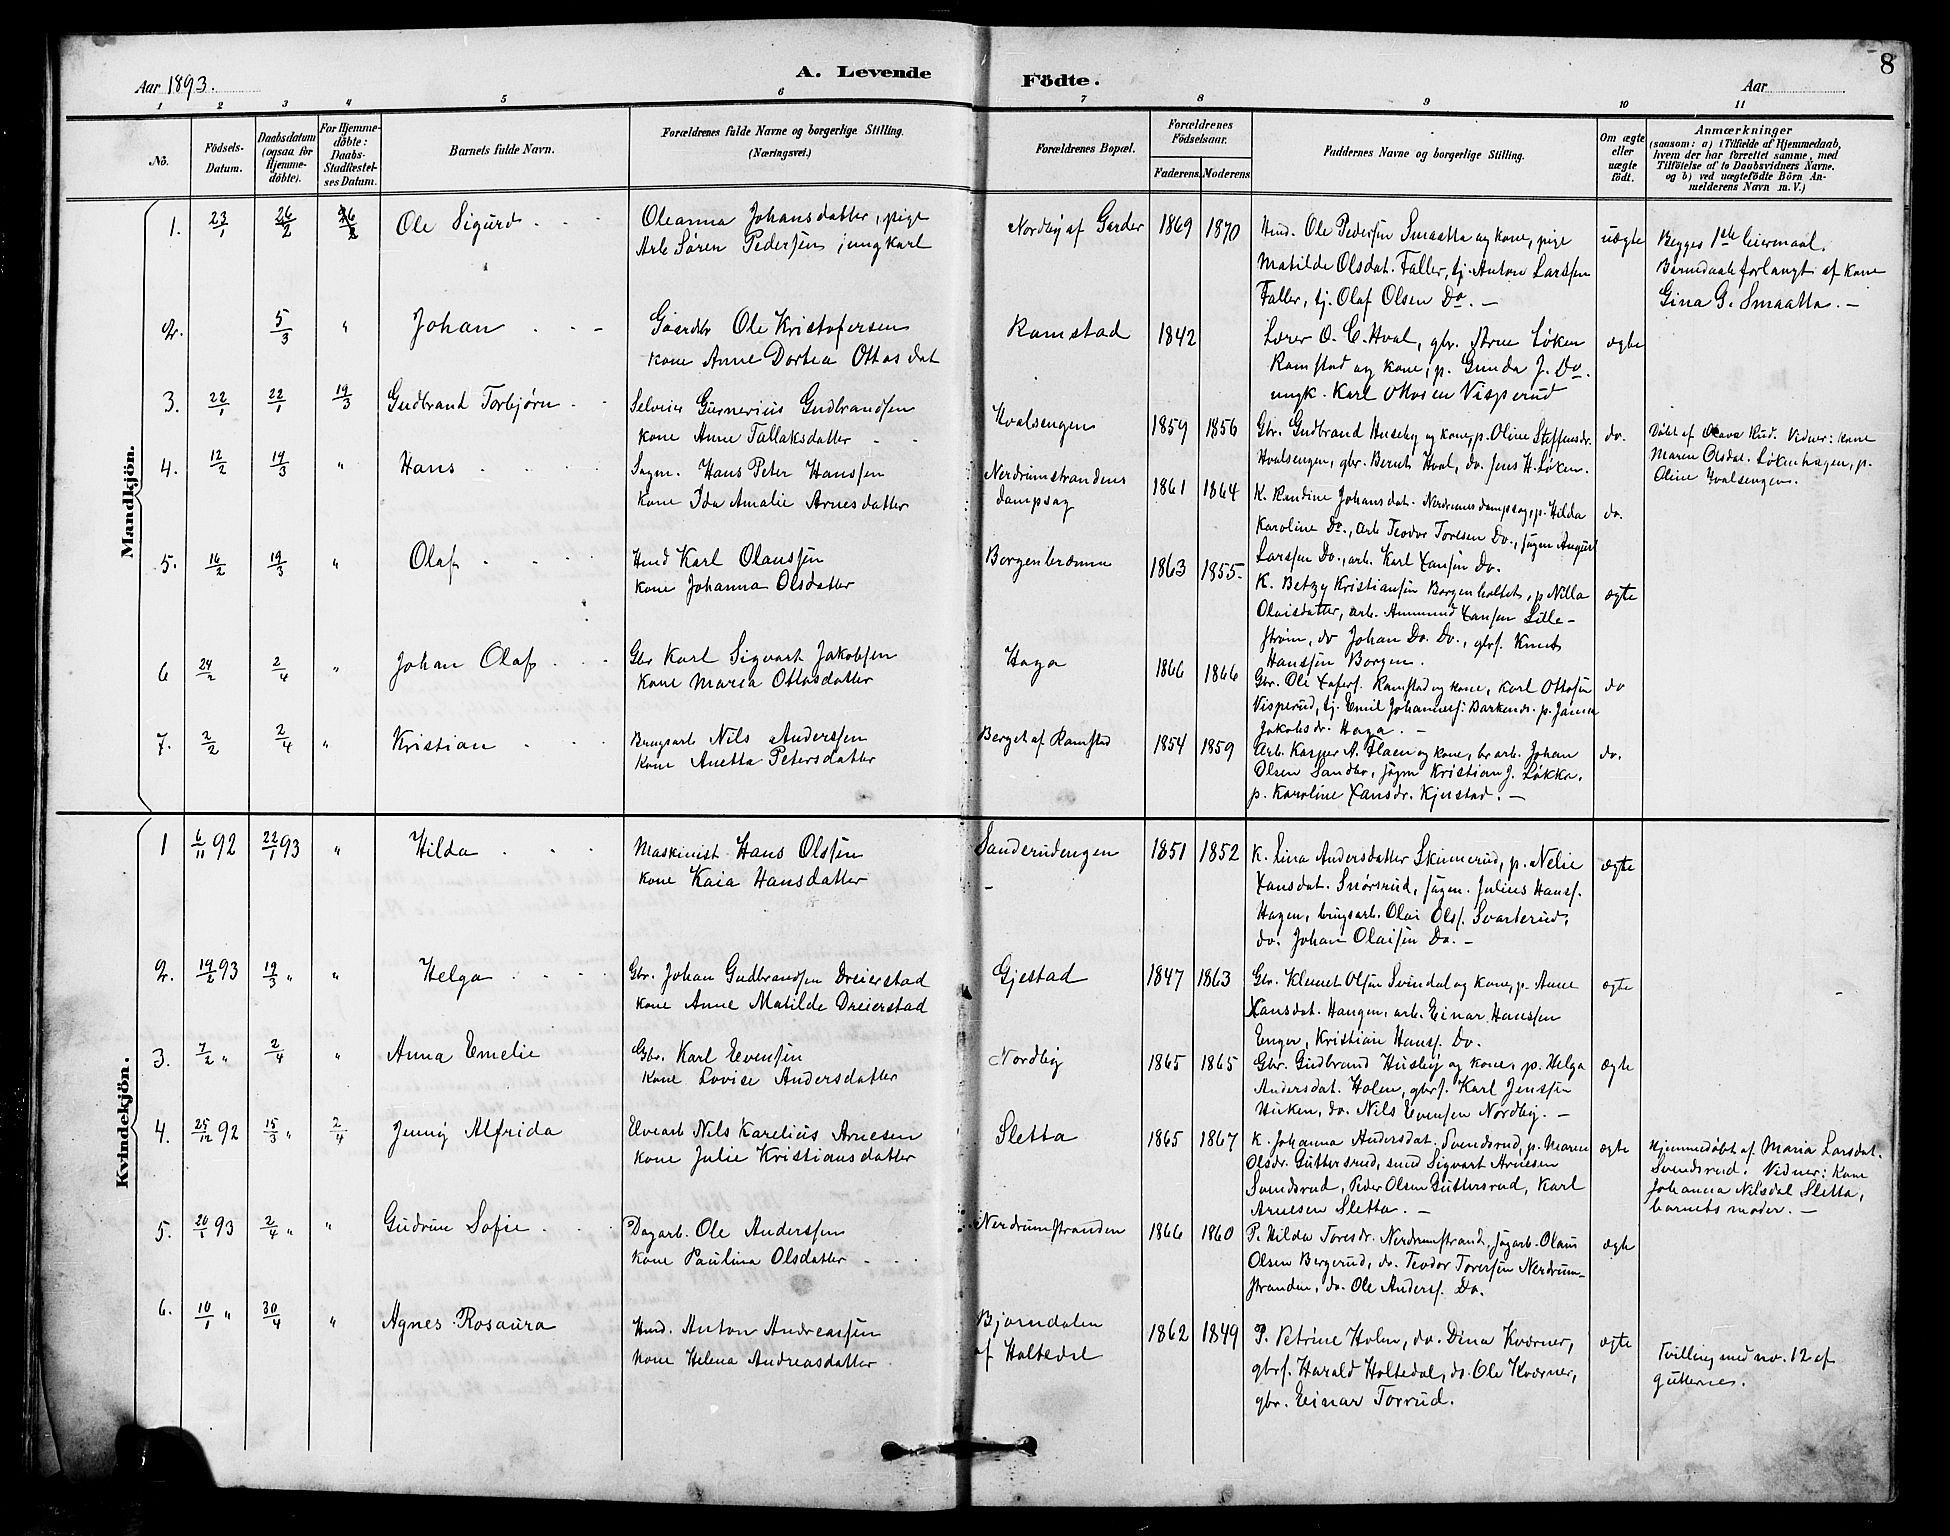 8
Aar 1893.
A. Levende Födte.
Aar
1 2 3 4 5 6 7 8 9 10 11
No.
Födsels-Datum.
Daabsdatum (ogsaa for Hjemme-døbte).
For Hjemme-døbte: Daabs-Stadfestel-ses Datum.
Barnets fulde Navn.
Forældrenes fulde Navne og borgerlige Stilling.
(Næringsvei.)
Forældrenes Bopæl.
Forældrenes Födselsaar.
Faderens Moderens
Faddernes Navne og borgerlige Stilling.
Om ægte eller uægte födt.
Anmærkninger
(saasom: a) i Tilfælde af Hjemmedaab, hvem der har forrettet samme, med Tilföielse af to Daabsvidners Navne. og b) ved uægtefödte Börn An-melderens Navn m. V.)
Mandkjön.
1. 23/1 26/2 26/2 Ole Sigurd
Oleanna Johansdatter, pige
Arb Søren Pedersen, ungkarl
Nordby af Garder 1869 1870
Hmd. Ole Pedersen Smaatta og kone, pige
Matilde Olsdat. Faller, tj. Anton Larssen
Faller, tj. Olaf Olsen Do. —
uægte
Begges 1ste leiermaal.
Barnedaab forlangt af kone
Gina G. Smaatta. —
2. 5/3 " Johan
Gaardbr Ole Kristofersen
kone Anne Dortea Ottosdat
Ramstad 1842
Lærer O. C. Hval, gbr. Arne Løken
Ramstad og kone, p. Gunda J. Do.
ungk. Karl Ottosen Visperud
ægte
3. 22/1 22/1 19/3 Gudbrand Torbjørn
Selveier Gunerius Gudbrandsen
kone Anne Tallaksdatter
Hvalsengen 1859 1856
Gbr. Gudbrand Huseby og kone, p. Oline Steffensdr.
Hvalsengen, gbr. Bernt Hval, do. Jens H. Løken.
do.
Døbt af Olava Rud. Vidner: kone
Maren Olsdat. Løkenhagen, p.
Oline Hvalsengen.
4. 12/2 19/3 " Hans
Sagm. Hans Peter Hanssen
kone Ida Amalie Arnesdatter
Nerdrumstrandens
dampsag
1861 1864
K. Randine Johansdat. Nerdrums dampsag, p. Hilda
Karoline Do., arb Teodor Toresen Do., sagm August
Larssen Do., arb. Karl Xansen Do.
do.
5. 16/2 19/3 " Olaf
Hmd Karl Olaussen
kone Johanna Olsdatter
Borgenbrænna 1863 1855
K. Betzy Kristiansen Borgenholtet, p Nilla
Olaisdatter, arb. Ammund Xansen Lille-
strøm, do Johan Do. Do., gbrs. Knut
Hanssen Borgen.
ægte
6 24/2 2/4 " Johan Olaf
Gbr Karl Sigvart Jakobsen
kone Maria Ottosdatter
Haga 1866 1866
Gbr. Ole Xofers. Ramstad og kone, Karl Ottosen
Visperud, tj. Emil Johanness. Barkend. p. Janna
Jakobsdr. Haga. —
do
7. 2/2 2/4 " Kristian
Brugsarb Nils Anderssen
kone Anetta Petersdatter
Berget af Ramstad 1854 1859
Arb. Kasper A. Flaen og kone, br.arb. Johan
Olsen Sandbo, sagm Kristian J. Løkka,
p. Karoline Xansdr. Kjustad. —
do.
Kvindekjön.
1 6/11 92 22/1 93 " Hilda
Maskinist Hans Olssen
kone Kaia Hansdatter
Sanderudengen 1851 1852
K. Lina Andersdatter Skinnerud, p. Nelie
Xansdat. Snørsrud, sagm. Julius Hanss.
Hagen, brugsarb. Olai Ols. Svarterud,
do. Johan Olaisen Do. —
ægte
2. 19/2 93 19/3 " " Helga
Gbr. Johan Gudbrandsen Dreierstad
kone Anne Matilde Dreierstad
Gjestad 1847 1863
Gbr. Klemet Olsen Svindal og kone, p. Anne
Xansdat. Haugen, arb. Einar Hanssen
Enger, Kristian Hanss. Do.
ægte
3. 7/2 " 2/4 " Anna Emelie
Gbr. Karl Evensen
kone Lovise Andersdatter
Nordby 1865 1865
Gbr. Gudbrand Huseby og kone, p. Helga
Andersdat. Holen, gbrs. Karl Jenssen
Hirken, do. Nils Evensen Nordby. —
ægte
4. 25/12 92 15/3 " 2/4 Jenny Alfrida
Elvearb Nils Karelius Arnesen
kone Julie Kristiansdatter
Sletta 1865 1867
K. Johanna Andersdat. Svendsrud, p. Maren
Olsdr. Guttersrud, smed Sigvart Arnesen
Svendsrud, Peder Olsen Guttersrud, Karl
Arnesen Sletta. —
ægte
Hjemmedøbt af Maria Larsdat.
Svendsrud. Vidner: kone
Johanna Nilsdat Sletta,
barnets moder. —
5. 20/1 93 2/4 " " Gudrun Sofie
Dagarb. Ole Anderssen
kone Paulina Olsdatter
Nerdrumstranden 1866 1860
P. Hilda Toresdr. Nerdrumstrand, sagarb. Olaus
Olsen Bergerud, do. Teodor Toressen Nerdrum-
stranden, do. Ole Anderss. Do.
ægte
6. 10/1 " 30/4 " Agnes Rosaura
Hmd. Anton Andreassen
kone Helena Andreasdatter
Bjørndalen
af Holtedal
1862 1849
P. Petrine Holm, do. Dina Kværner,
gbrs. Harald Holtedal, do. Ole Kværner,
gbr. Einar Torrud.
ægte
Tvilling med no. 12 af
guttenes.